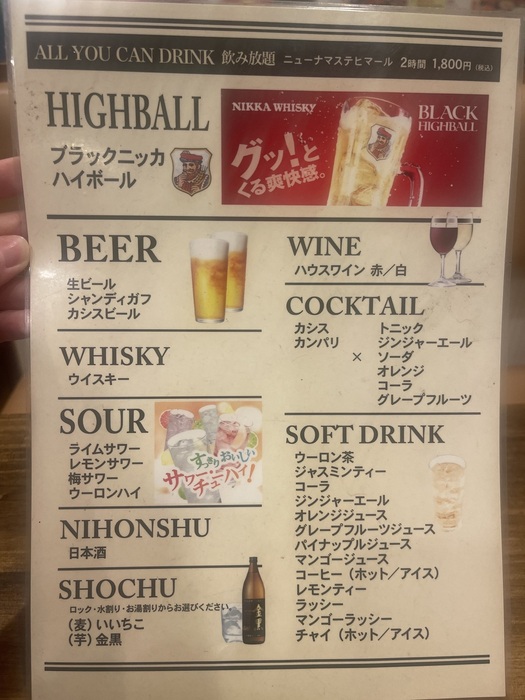 ALL YOU CAN DRINK 飲み放題 ニューナマステヒマール 2時間 1,800円(税込)
HIGHBALL
ブラックニッカ
ハイボール
NIKKA WHISKY
BLACK
HIGHBALL
グッ!と
くる爽快感。
BEER
生ビール
シャンディガフ
カシスビール
WHISKY
ウイスキー
SOUR
ライムサワー
レモンサワー
梅サワー
ウーロンハイ
すっきりおいしい
サワー・
チューハイ!
NIHONSHU
日本酒
SHOCHU
ロック・水割り・お湯割りからお選びください。
(麦)いいちこ
(芋)金黒
WINE
ハウスワイン 赤/白
COCKTAIL
カシス トニック
カンパリ ジンジャーエール
× ソーダ
オレンジ
コーラ
グレープフルーツ
SOFT DRINK
ウーロン茶
ジャスミンティー
コーラ
ジンジャーエール
オレンジジュース
グレープフルーツジュース
パイナップルジュース
マンゴージュース
コーヒー(ホット/アイス)
レモンティー
ラッシー
マンゴーラッシー
チャイ(ホット/アイス)